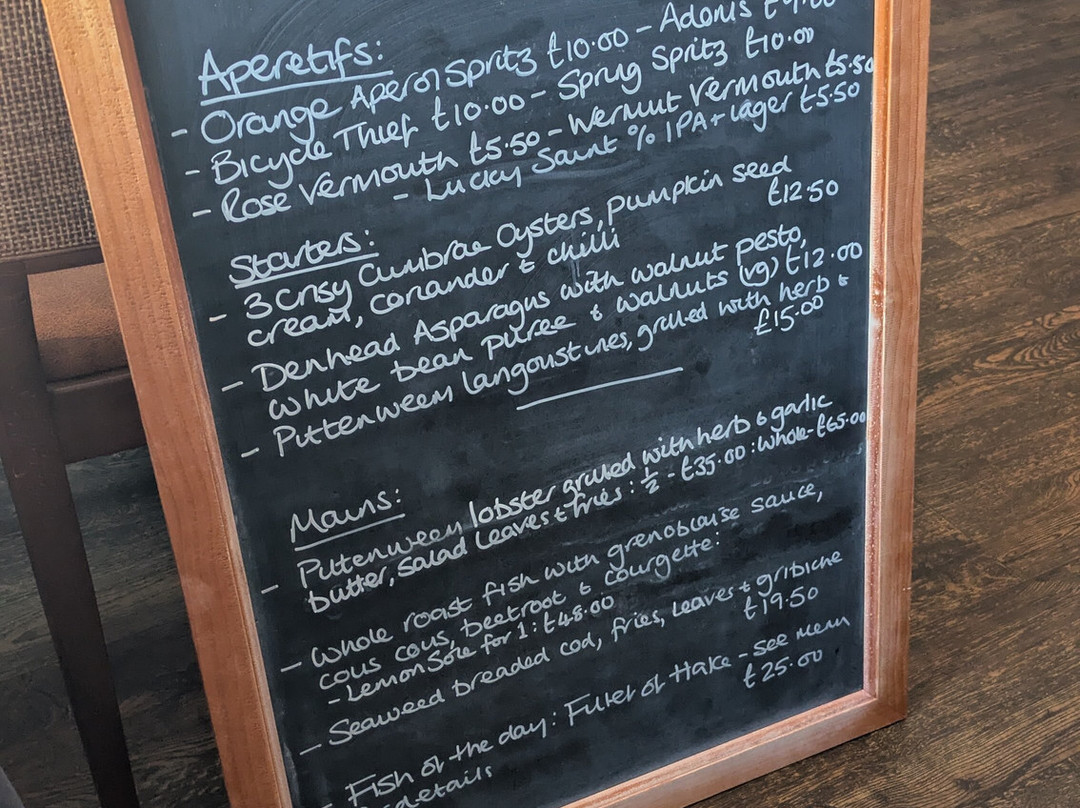 Aperetifs:
- Orange Aperol Spritz £10.00 - Adonis
- Bicycle Thief £10.00 - Sprug Spritz £10.00
- Rose Vermouth £5.50 - Wermut Vermouth £5.50
- Lucky Saint % IPA + lager £5.50
Starters:
- 3 Crisy Cumbrae Oysters, pumpkin seed
cream, coriander & chilli £12.50
- Denhead Asparagus with walnut pesto,
white bean puree & walnuts (vg) £12.00
- Pittenweem langoustines, grilled with herb &
£15.00
Mains:
- Pittenweem lobster grilled with herb & garlic
butter, salad leaves & fries: 1/2 - £35.00 : whole - £65.00
- Whole roast fish with grenoblaise sauce,
cous cous, beetroot & courgette:
- Lemon Sole for 1: £48.00
- Seaweed breaded cod, fries, leaves & gribiche
£19.50
- Fish of the day: Fillet of Hake - see menu
details £25.00